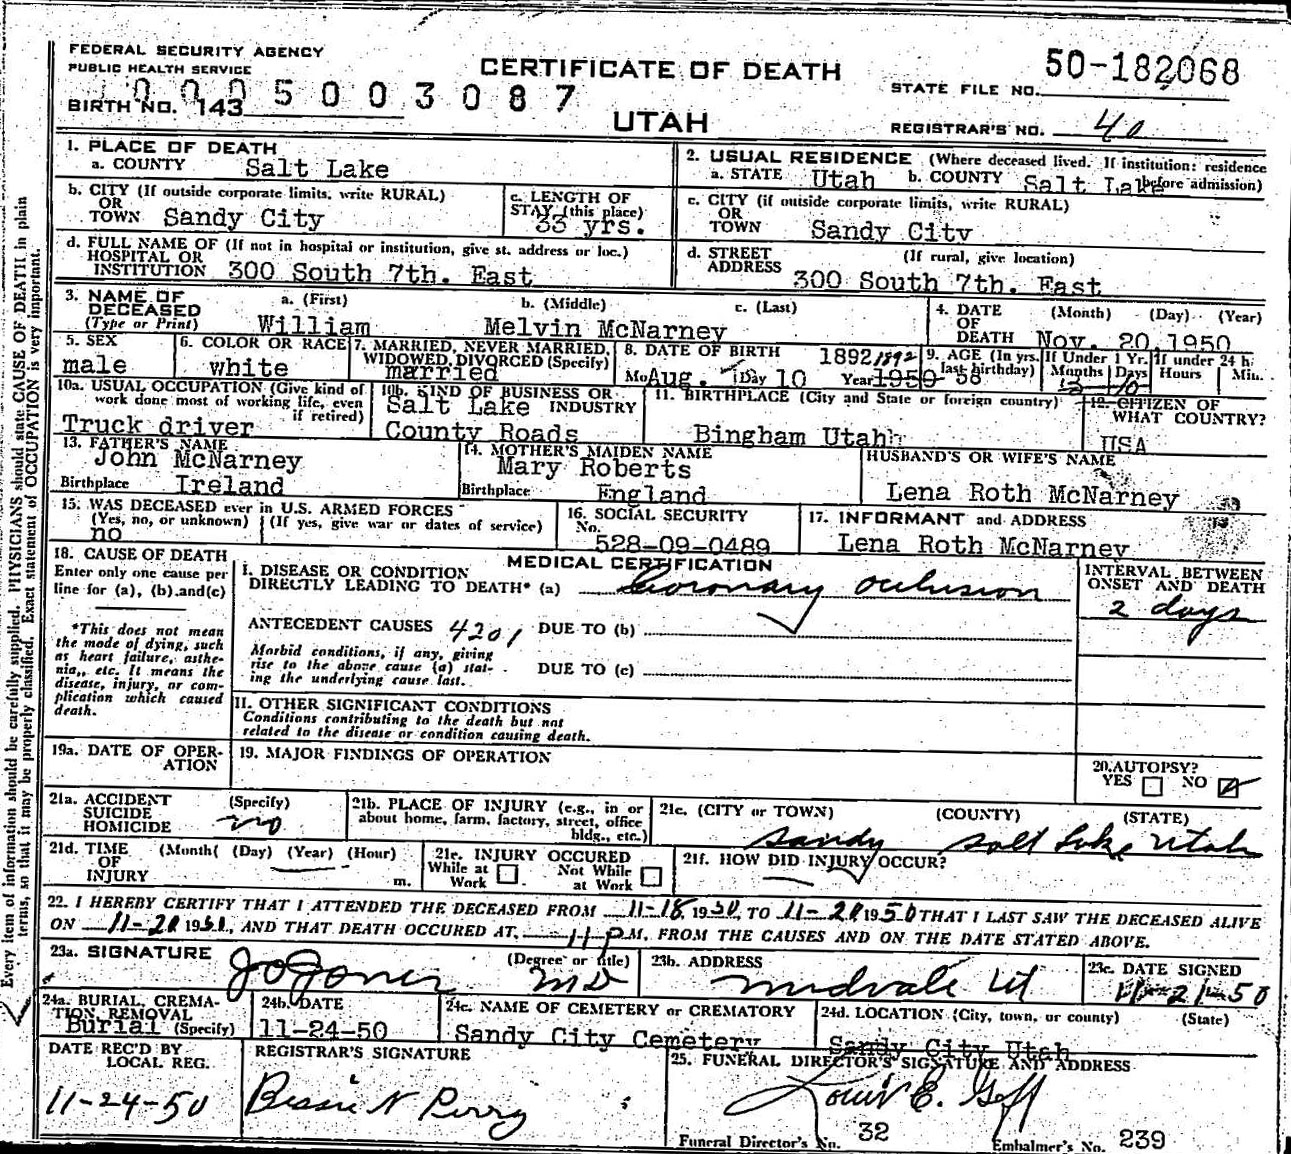 FEDERAL SECURITY AGENCY
PUBLIC HEALTH SERVICE
CERTIFICATE OF DEATH
UTAH
50-182068
STATE FILE NO.
0005003087
BIRTH NO. 143
REGISTRAR'S NO. 40
1. PLACE OF DEATH
a. COUNTY Salt Lake
2. USUAL RESIDENCE (Where deceased lived. If institution: residence before admission)
a. STATE Utah b. COUNTY Salt Lake
b. CITY (If outside corporate limits, write RURAL)
OR
TOWN Sandy City
c. LENGTH OF
STAY (this place)
33 yrs.
c. CITY (if outside corporate limits, write RURAL)
OR
TOWN Sandy City
d. FULL NAME OF (If not in hospital or institution, give st. address or loc.)
HOSPITAL OR
INSTITUTION 300 South 7th. East
d. STREET (If rural, give location)
ADDRESS 300 South 7th. East
3. NAME OF DECEASED
(Type or Print)
a. (First) b. (Middle) c. (Last)
William Melvin McNarney
4. DATE OF DEATH (Month) (Day) (Year)
Nov. 20, 1950
5. SEX
male
6. COLOR OR RACE
white
7. MARRIED, NEVER MARRIED,
WIDOWED, DIVORCED (Specify)
married
8. DATE OF BIRTH 1892 1892
Mo. Aug. Day 10 Year 1950
9. AGE (In yrs. last birthday) 58
If Under 1 Yr. If under 24 h:
Months Days Hours Min.
10a. USUAL OCCUPATION (Give kind of
work done most of working life, even
if retired)
Truck driver
10b. KIND OF BUSINESS OR
INDUSTRY
Salt Lake
County Roads
11. BIRTHPLACE (City and State or foreign country)
Bingham Utah
12. CITIZEN OF
WHAT COUNTRY?
USA
13. FATHER'S NAME
John McNarney
Birthplace Ireland
14. MOTHER'S MAIDEN NAME
Mary Roberts
Birthplace England
HUSBAND'S OR WIFE'S NAME
Lena Roth McNarney
15. WAS DECEASED ever in U.S. ARMED FORCES
(Yes, no, or unknown) (If yes, give war or dates of service)
no
16. SOCIAL SECURITY
No.
528-09-0489
17. INFORMANT and ADDRESS
Lena Roth McNarney
18. CAUSE OF DEATH
Enter only one cause per
line for (a), (b) and (c)
*This does not mean
the mode of dying, such
as heart failure, asthe-
nia, etc. It means the
disease, injury, or com-
plication which caused
death.
MEDICAL CERTIFICATION
I. DISEASE OR CONDITION
DIRECTLY LEADING TO DEATH* (a) Coronary occlusion
INTERVAL BETWEEN
ONSET AND DEATH
2 days
ANTECEDENT CAUSES 4201 DUE TO (b)
Morbid conditions, if any, giving
rise to the above cause (a) stat-
ing the underlying cause last.
DUE TO (c)
II. OTHER SIGNIFICANT CONDITIONS
Conditions contributing to the death but not
related to the disease or condition causing death.
19a. DATE OF OPER-
ATION
19. MAJOR FINDINGS OF OPERATION
20. AUTOPSY?
YES NO
21a. ACCIDENT
SUICIDE
HOMICIDE
(Specify)
no
21b. PLACE OF INJURY (e.g., in or
about home, farm, factory, street, office
bldg., etc.)
21c. (CITY or TOWN) (COUNTY) (STATE)
Sandy Salt Lake Utah
21d. TIME OF INJURY (Month( (Day) (Year) (Hour)
m.
21e. INJURY OCCURED
While at Work
Not While at Work
21f. HOW DID INJURY OCCUR?
22. I HEREBY CERTIFY THAT I ATTENDED THE DECEASED FROM 11-18 1950, TO 11-20 1950 THAT I LAST SAW THE DECEASED ALIVE
ON 11-20 1950, AND THAT DEATH OCCURED AT 11 P M. FROM THE CAUSES AND ON THE DATE STATED ABOVE.
23a. SIGNATURE (Degree or title)
J O Jones MD
23b. ADDRESS
Midvale Ut
23c. DATE SIGNED
11-21-50
24a. BURIAL, CREMA-
TION, REMOVAL
Burial (Specify)
24b. DATE
11-24-50
24c. NAME OF CEMETERY or CREMATORY
Sandy City Cemetery
24d. LOCATION (City, town, or county) (State)
Sandy City Utah
DATE REC'D BY
LOCAL REG.
11-24-50
REGISTRAR'S SIGNATURE
Bessie N Perry
25. FUNERAL DIRECTOR'S SIGNATURE AND ADDRESS
Louis E. Goff
Funeral Director's No. 32
Embalmer's No. 239
Every item of information should be carefully supplied. PHYSICIANS should state CAUSE OF DEATH in plain
terms, so that it may be properly classified. Exact statement of OCCUPATION is very important.